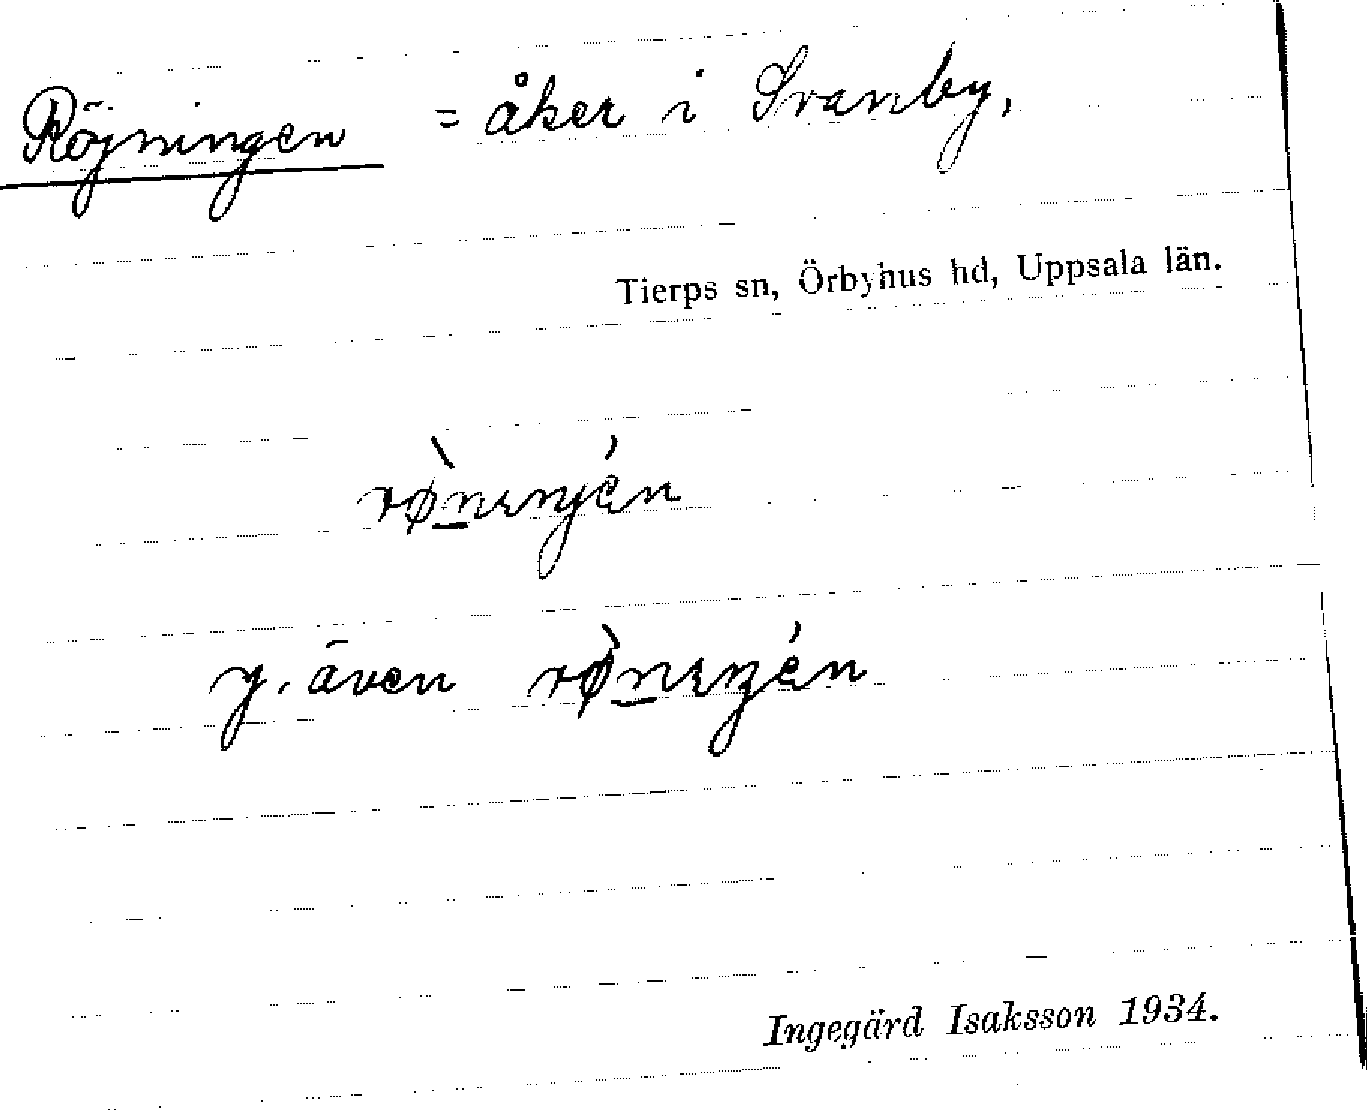 Röjningen = åker i Svanby,
Tierps sn, Örbyhus hd, Uppsala län.
y. även
Ingegärd Isaksson 1934.